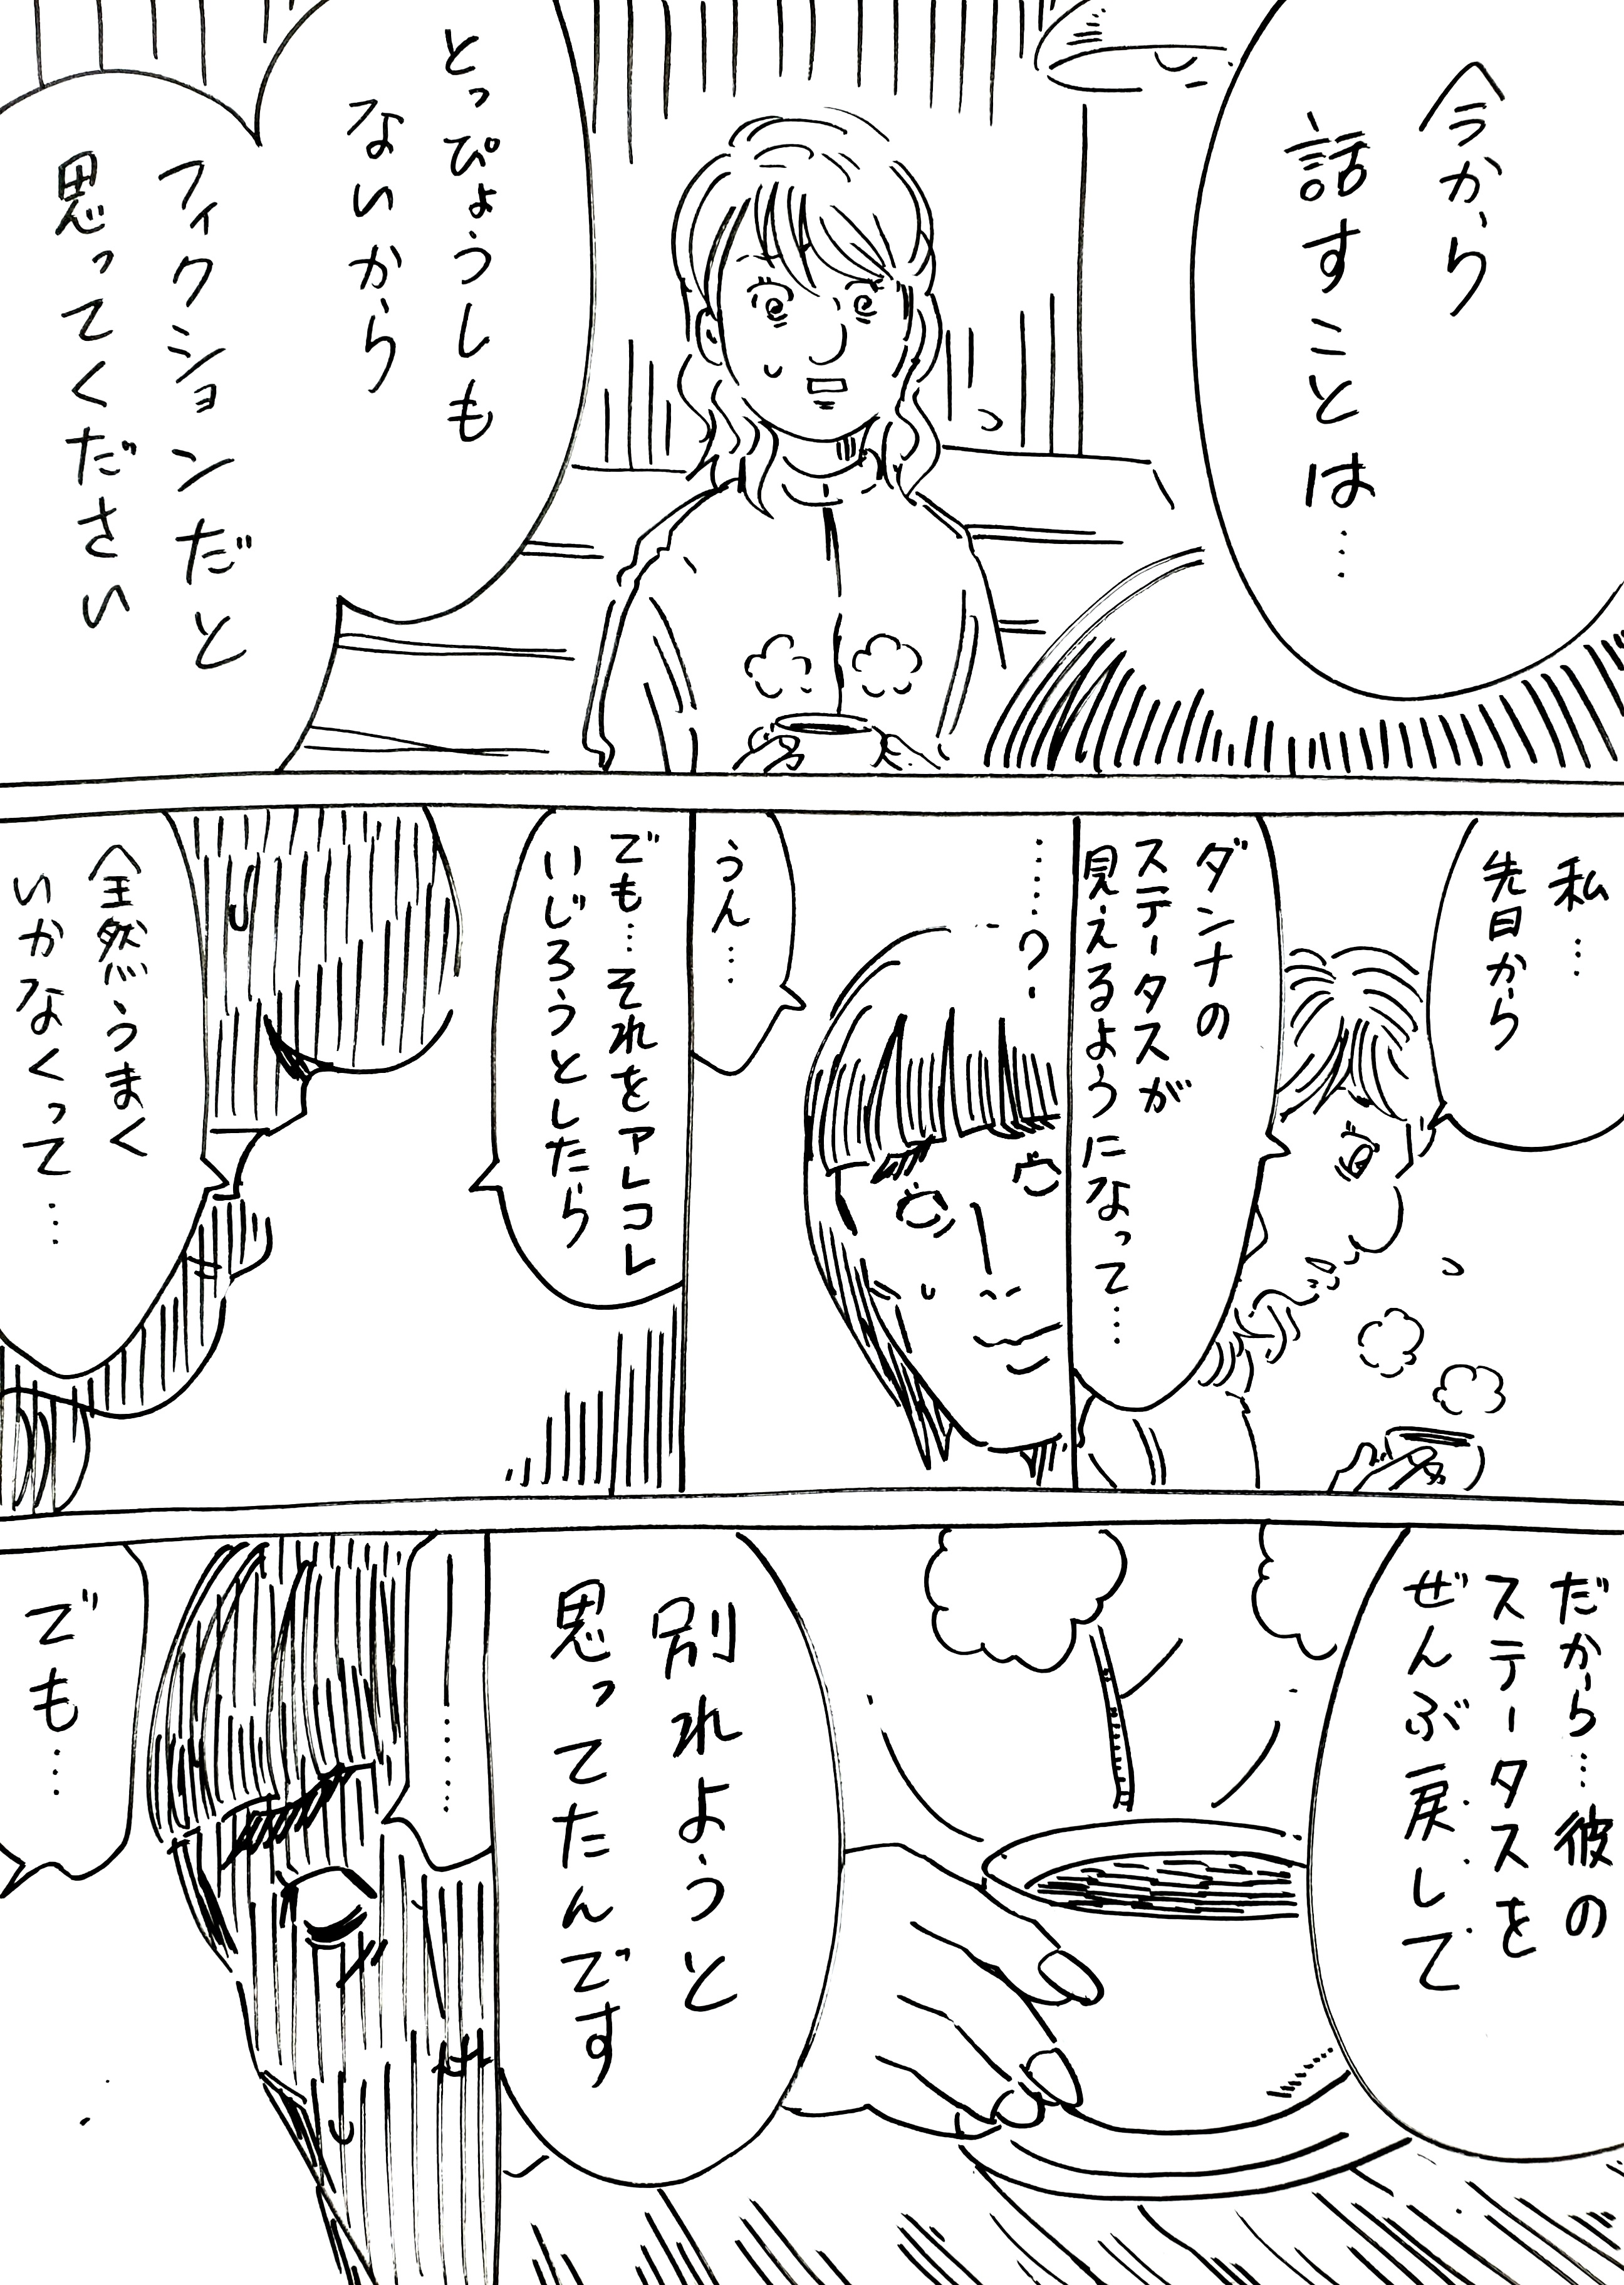 今から
話すことは…
とっぴょうしも
ないから
フィクションだと
思ってください
私…
先日から
ダンナの
ステータスが
見えるようになって…
……?
うん…
でも…それをアレコレ
いじろうとしたら
全然うまく
いかなくって…
だから…彼の
ステータスを
ぜんぶ戻して
別れようと
思ってたんです
……
でも…